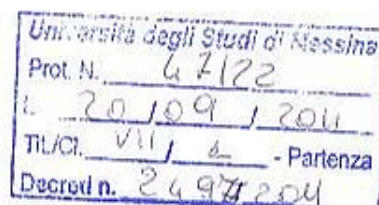 Università degli Studi di Messina
Prot. N. 47122
20/09/2011
Tit./Cl. VII / 1 - Partenza
Decreti n. 2011